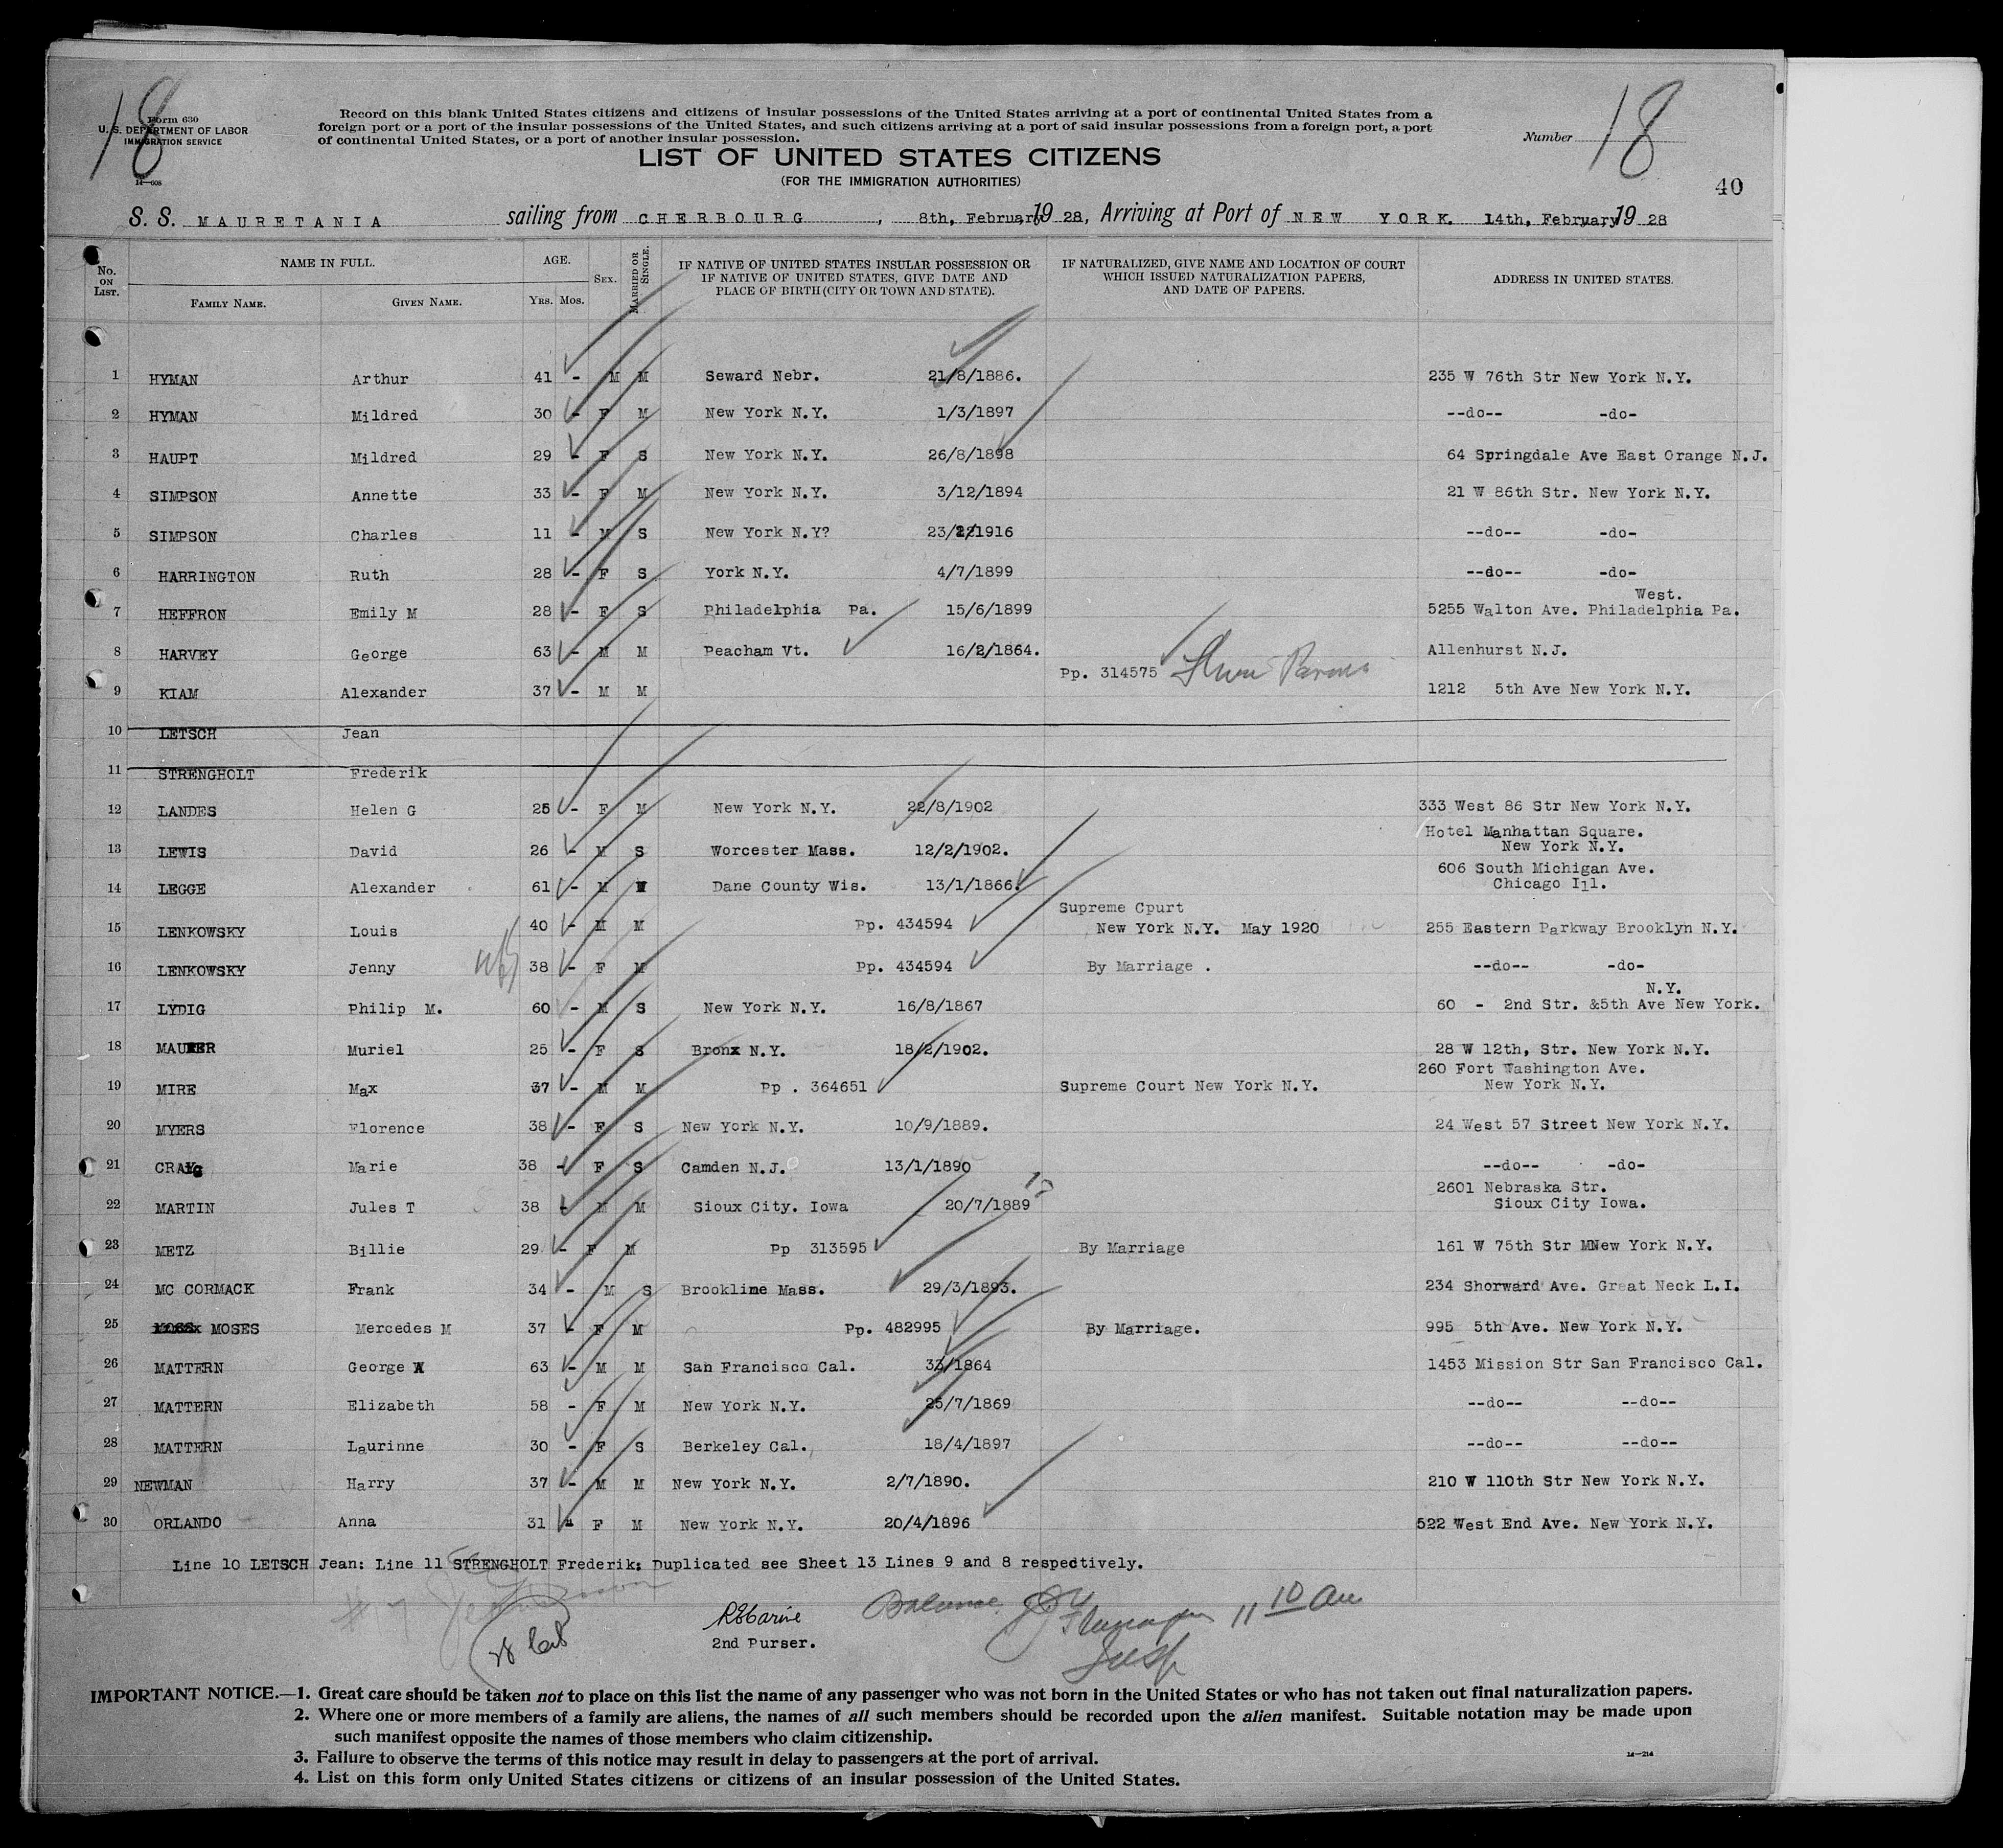 18
18
Form 630
U. S. DEPARTMENT OF LABOR
IMMIGRATION SERVICE
14—608
Record on this blank United States citizens and citizens of insular possessions of the United States arriving at a port of continental United States from a
foreign port or a port of the insular possessions of the United States, and such citizens arriving at a port of said insular possessions from a foreign port, a port
of continental United States, or a port of another insular possession.
Number
LIST OF UNITED STATES CITIZENS
(FOR THE IMMIGRATION AUTHORITIES)
40
S. S. MAURETANIA sailing from CHERBOURG , 8th, February, 1928, Arriving at Port of NEW YORK. 14th, February, 1928
No. ON LIST. NAME IN FULL. AGE. SEX. MARRIED OR SINGLE. IF NATIVE OF UNITED STATES INSULAR POSSESSION OR IF NATIVE OF UNITED STATES, GIVE DATE AND PLACE OF BIRTH (CITY OR TOWN AND STATE). IF NATURALIZED, GIVE NAME AND LOCATION OF COURT WHICH ISSUED NATURALIZATION PAPERS, AND DATE OF PAPERS. ADDRESS IN UNITED STATES.
FAMILY NAME. GIVEN NAME. YRS. MOS.
1 HYMAN Arthur 41 - M M Seward Nebr. 21/8/1886. 235 W 76th Str New York N.Y.
2 HYMAN Mildred 30 - F M New York N.Y. 1/3/1897 --do-- -do-
3 HAUPT Mildred 29 - F S New York N.Y. 26/8/1898 64 Springdale Ave East Orange N.J.
4 SIMPSON Annette 33 - F M New York N.Y. 3/12/1894 21 W 86th Str. New York N.Y.
5 SIMPSON Charles 11 - M S New York N.Y? 23/ /1916 --do-- -do-
6 HARRINGTON Ruth 28 - F S York N.Y. 4/7/1899 --do-- -do-
West.
7 HEFFRON Emily M 28 - F S Philadelphia Pa. 15/6/1899 5255 Walton Ave. Philadelphia Pa.
8 HARVEY George 63 - M M Peacham Vt. 16/2/1864. Allenhurst N.J.
Pp. 314575
9 KIAM Alexander 37 - M M 1212 5th Ave New York N.Y.
10 LETSCH Jean
11 STRENGHOLT Frederik
12 LANDES Helen G 25 - F M New York N.Y. 22/8/1902 333 West 86 Str New York N.Y.
Hotel Manhattan Square.
13 LEWIS David 26 - M S Worcester Mass. 12/2/1902. New York N.Y.
606 South Michigan Ave.
14 LEGGE Alexander 61 - M Dane County Wis. 13/1/1866. Chicago Ill.
Supreme Cpurt
15 LENKOWSKY Louis 40 - M M Pp. 434594 New York N.Y. May 1920 255 Eastern Parkway Brooklyn N.Y.
16 LENKOWSKY Jenny 38 - F M Pp. 434594 By Marriage . --do-- -do-
N.Y.
17 LYDIG Philip M. 60 - M S New York N.Y. 16/8/1867 60 - 2nd Str. &5th Ave New York.
18 MAURER Muriel 25 - F S Bronx N.Y. 18/2/1902. 28 W 12th, Str. New York N.Y.
260 Fort Washington Ave.
19 MIRE Max 37 - M M Pp . 364651 Supreme Court New York N.Y. New York N.Y.
20 MYERS Florence 38 - F S New York N.Y. 10/9/1889. 24 West 57 Street New York N.Y.
21 CRAIG Marie 38 - F S Camden N.J. 13/1/1890 --do-- -do-
2601 Nebraska Str.
22 MARTIN Jules T 38 - M M Sioux City. Iowa 20/7/1889 Sioux City Iowa.
23 METZ Billie 29 - F M Pp 313595 By Marriage 161 W 75th Str MNew York N.Y.
24 MC CORMACK Frank 34 - M S Brookline Mass. 29/3/1893. 234 Shorward Ave. Great Neck L.I.
25 MOSES Mercedes M 37 - F M Pp. 482995 By Marriage. 995 5th Ave. New York N.Y.
26 MATTERN George W 63 - M M San Francisco Cal. 33/1864 1453 Mission Str San Francisco Cal.
27 MATTERN Elizabeth 58 - F M New York N.Y. 25/7/1869 --do-- --do--
28 MATTERN Laurinne 30 - F S Berkeley Cal. 18/4/1897 --do-- --do--
29 NEWMAN Harry 37 - M M New York N.Y. 2/7/1890. 210 W 110th Str New York N.Y.
30 ORLANDO Anna 31 - F M New York N.Y. 20/4/1896 522 West End Ave. New York N.Y.
Line 10 LETSCH Jean: Line 11 STRENGHOLT Frederik: Duplicated see Sheet 13 Lines 9 and 8 respedtively.
Balance
11 10 am
2nd Purser.
Insp
IMPORTANT NOTICE.—1. Great care should be taken not to place on this list the name of any passenger who was not born in the United States or who has not taken out final naturalization papers.
2. Where one or more members of a family are aliens, the names of all such members should be recorded upon the alien manifest. Suitable notation may be made upon
such manifest opposite the names of those members who claim citizenship.
3. Failure to observe the terms of this notice may result in delay to passengers at the port of arrival.
14—214
4. List on this form only United States citizens or citizens of an insular possession of the United States.